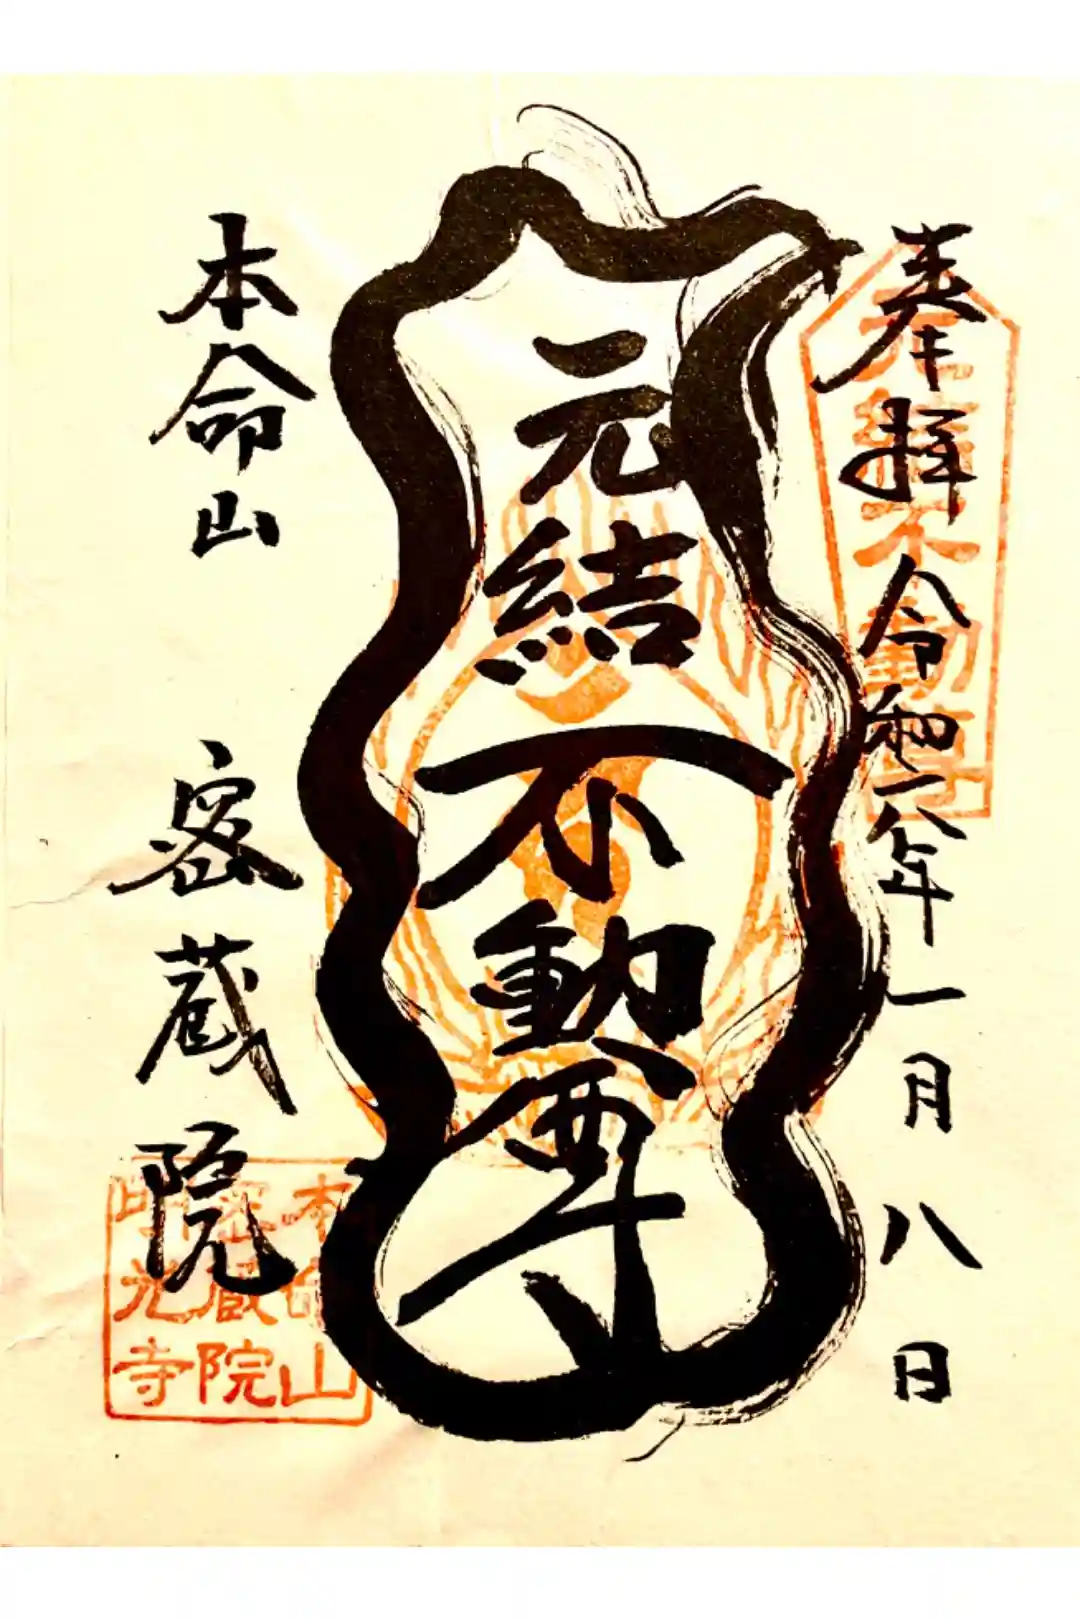 奉拝 令和六年一月八日
元結不動尊
元結不動尊
本命山 密蔵院
本命山
密蔵院
明光寺